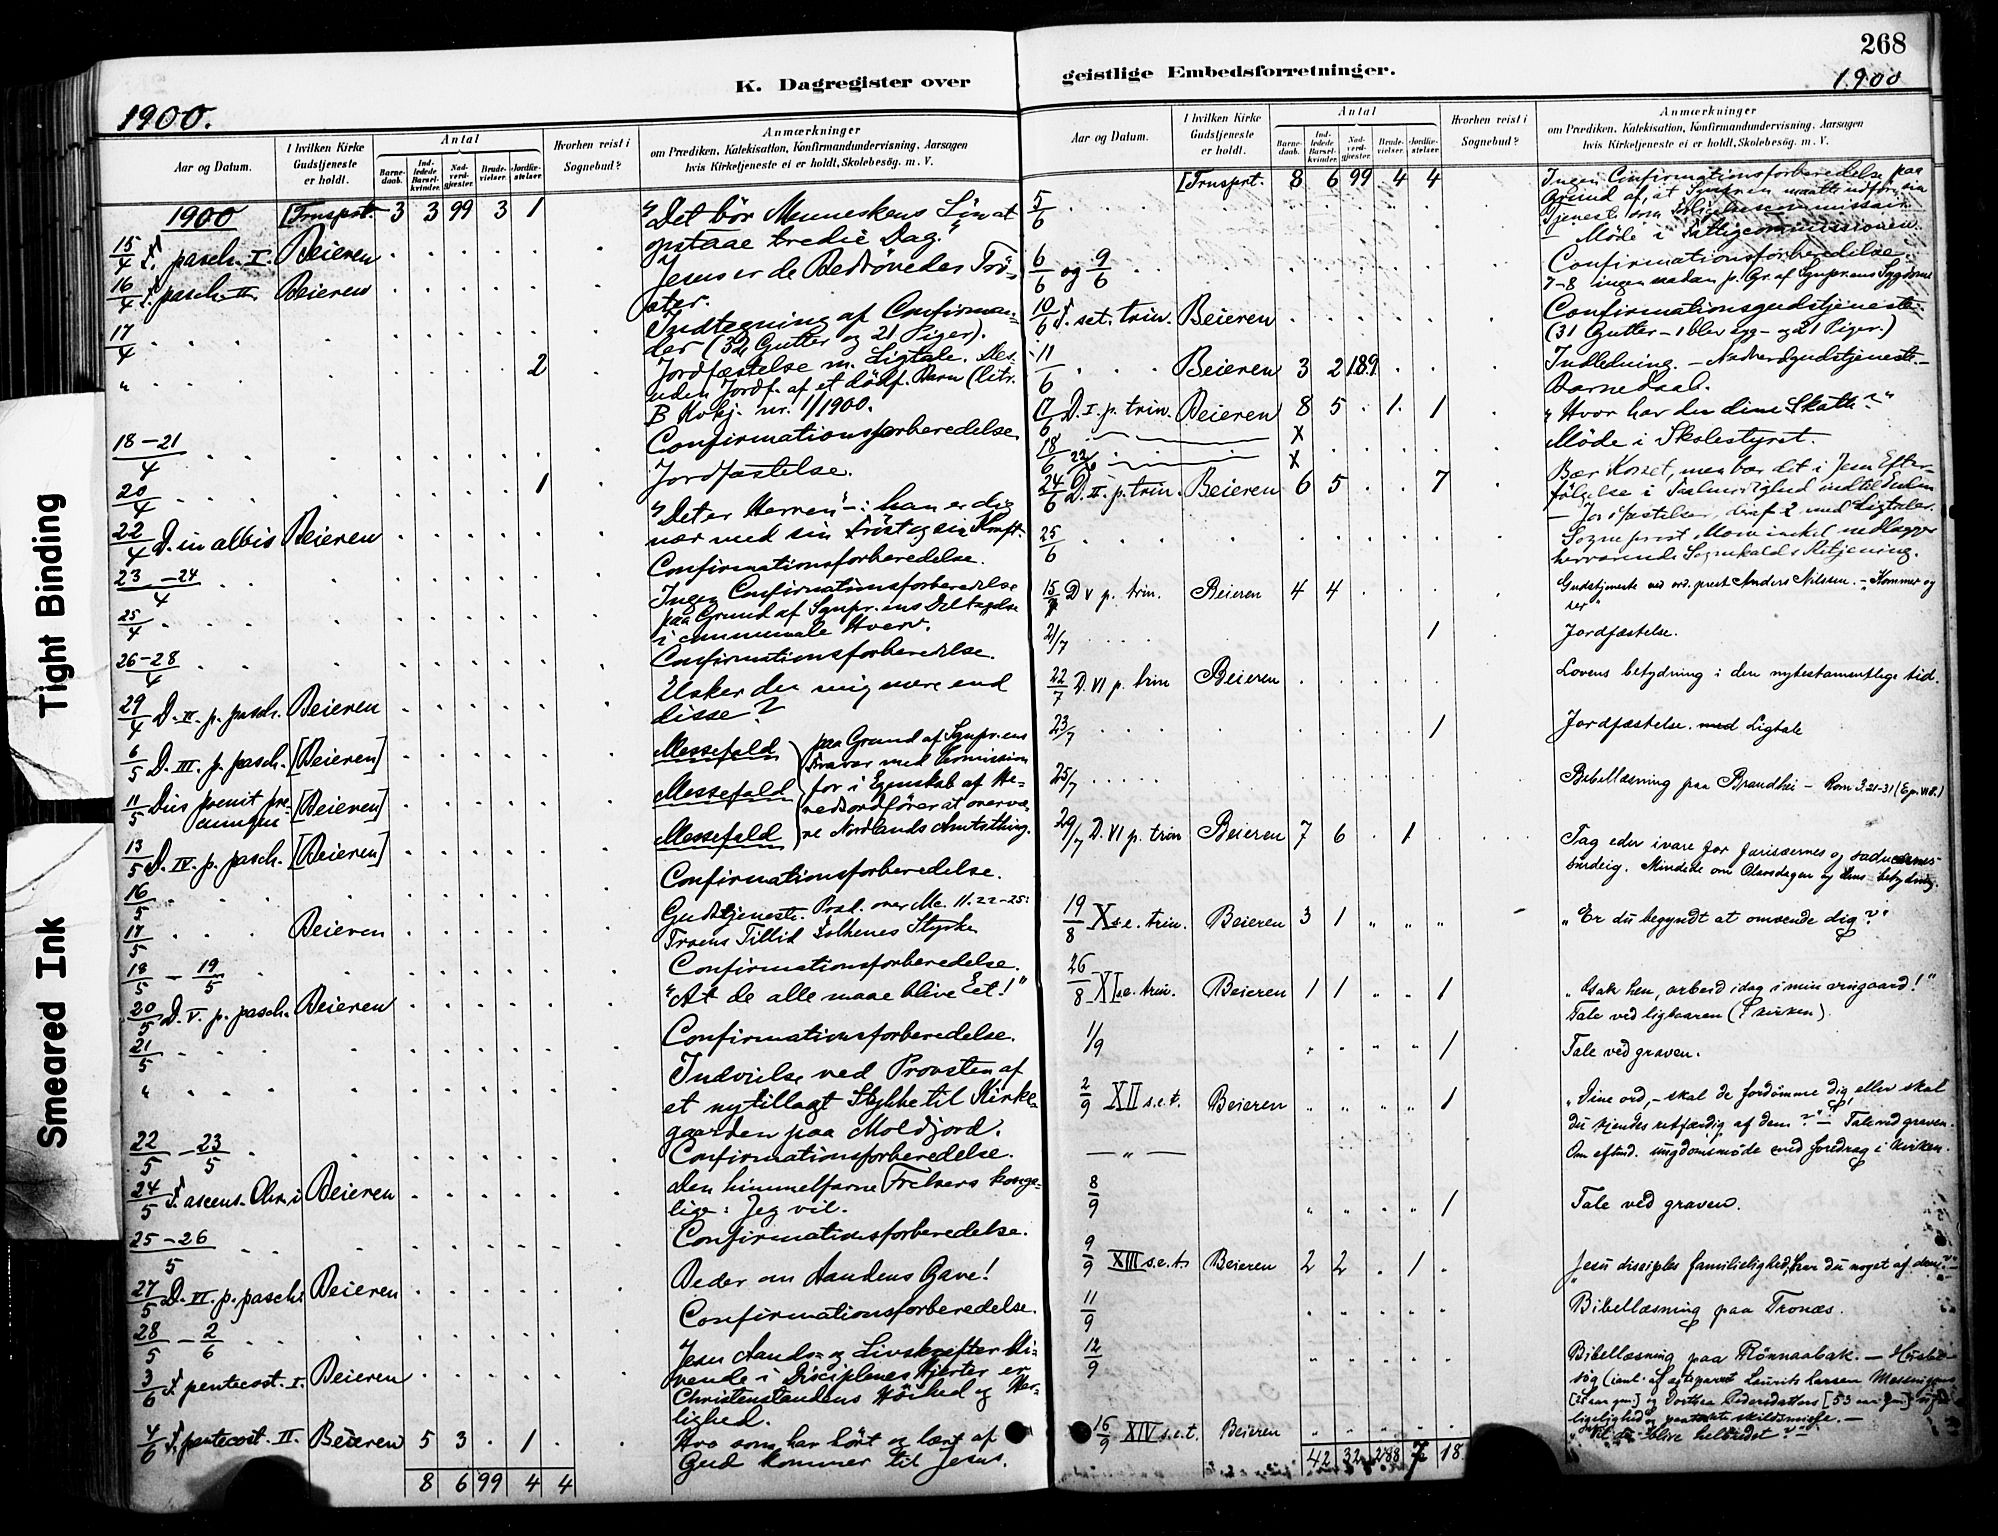 268
K. Dagregister over
geistlige Embedsforretninger.
1900.
1900
Tight Binding
Smeared Ink
Aar og Datum.
I hvilken Kirke
Gudstjeneste
er holdt.
Antal
Barne-
daab.
Ind-
ledede
Barsel-
kvinder.
Nad-
verd-
gjester.
Brude-
vielser.
Jordfæ-
stelser.
Hvorhen reist i
Sognebud?
Anmærkninger
om Prædiken, Katekisation, Konfirmandundervisning, Aarsagen
hvis Kirketjeneste ei er holdt, Skolebesøg. m. V.
1900 [Trnsprt. 3 3 99 3 1 "Det bør Menneskens Søn at
opstaae tredie Dag."
15/4 F. pasch. I. Beieren
Jesus er de Bedrøvedes Trø-
ster.
16/4 F. pasch. II Beieren
17/4 Indtegning af Confirman-
der (32 Gutter og 21 Piger).
" 2 Jordfæstelse m. Ligtale. Des-
uden Jordf. af et dødf. Barn (litr.
B Kvkj. nr. 1/1900.
18-21/4 Confirmationsforberedelse
20/4 1 Jordfæstelse.
22/4 D. in albis Beieren "Det er Herren" -: han er dig
nær med sin Trøst og sin Kraft.
23-24/4 Confirmationsforberedelse.
25/4 Ingen Confirmationsforberedelse
paa Grund af Sgnpr.ens Deltagelse
i communale Hverv.
26-28/4 Confirmationsforberedelse.
29/4 D. II. p. pasch. Beieren Elsker du mig mere end
disse?
6/5 D. III. p. pasch. [Beieren] Messefald paa Grund af Sgnpr.ens
Fravær med Permission
11/5 Dies [Beieren] Messefald for i Egenskab af He-
redsordfører at overvæ-
13/5 D. IV. p. pasch. [Beieren] Messefald re Nordlands Amtsthing.
16/5 Confirmationsforberedelse.
17/5 Beieren Gudstjeneste. Præd. over Mc. 11:22-25:
Troens Tillid Bønnens Styrke
18/5 - 19/5 Confirmationsforberedelse.
20/5 D. V. p. pasch. Beieren "At de alle maae blive Eet!"
21/5 Confirmationsforberedelse.
" Indvielse ved Provsten af
et nytillagt Stykke til Kirke-
gaarden paa Moldjord.
22/5 - 23/5 Confirmationsforberedelse.
24/5 F. ascens. Chr.i Beieren den himmelfarne Frelsers konge-
lige: Jeg vil.
25-26/5 Confirmationsforberedelse.
27/5 D. VI. p. pasch. Beieren Beder om Aandens Gave!
28/5 - 2/6 Confirmationsforberedelse.
3/6 F. pentecost. I. Beieren Jesu Aands- og Livskræfter bli-
vende i Disciplenes Hjerter er
Christenstandens Høihed og Her-
lighed.
4/6 F. pentecost. II. Beieren 5 3 . 1 Hvo som har hørt og lært af
Gud kommer til Jesus.
8 6 99 4 4
Aar og Datum.
I hvilken Kirke
Gudstjeneste
er holdt.
Antal
Barne-
daab.
Ind-
ledede
Barsel-
kvinder.
Nad-
verd-
gjester.
Brude-
vielser.
Jordfæ-
stelser.
Hvorhen reist i
Sognebud?
Anmærkninger
om Prædiken, Katekisation, Konfirmandundervisning, Aarsagen
hvis Kirketjeneste ei er holdt, Skolebesøg. m. V.
[Trnsprt. 8 6 99 4 4
5/6 Ingen Confirmationsforberedelse paa
Grund af, at Sgnpr.en maatte udføre sin
Tjeneste som
- Møde i Fattigcommissionen.
6/6 og 9/6 Confirmationsforberedelse.
7-8 ingen saadan p. Gr. af Sgnpr.ens Sygdom
10/6 F. sct. trin. Beieren Confirmationsgudstjeneste.
(31 Gutter - 1 blev syg - og 21 Piger.)
11/6 Beieren 3 2 189 Indledning. - Nadverdgudstjeneste. -
Barnedaab.
17/6 D. I. p. trin. Beieren 8 5 . 1. 1 "Hvor har du dine Skatte?"
18/6 X Møde i Skolestyret.
22/6 X
24/6 D. II. p. trin. Beieren 6 5 . . 7 Bær Korset, men bær det i Jesu Efter-
følgelse i Taalmodighed indtil Enden
- Jordfæstelser, deraf 2 med Ligtaler.
25/6 Sogneprest nedlægger
herværende Sognekalds Betjening.
15/7 D V p. trin. Beieren 4 4 Gudstjeneste ved ord. prest Anders Nilssen. - "Kommer og
ser"
21/7 1 Jordfæstelse.
22/7 D. VI p. trin Beieren Lovens betydning i den nytestamentlige tid.
23/7 1 Jordfæstelse. med Ligtale
25/7 Bibellæsning paa Brandhei - Rom 3.21-31
29/7 D. VI p. trin Beieren 7 6 . 1 Tag eder ivare for farisæernes og saducæernes
surdeig. Mindede om Olavsdagen og dens betydning.
19/8 X s.e. trin. Beieren 3 1 " " " "Er du begyndt at omvende dig?"
26/8 XI s.e. trin. Beieren 1 1 " " 1 "Gak hen, arbeid idag i min vingaard!"
Tale ved ligbaaren (i kirken).
1/9 " " " " 1 Tale ved graven.
2/9 XII s.e.t. Beieren " " " " 1 "Dine ord, - skal de fordømme dig, eller skal
du kjendes retfærdig af dem?" - Tale ved graven.
- " - Om eftmd. ungdomsmøde med foredrag i kirken.
8/9 " " " " 1 Tale ved graven.
9/9 XIII s.e.t. Beieren 2 2 . 1 . "Jesu disciples familielighed, har du noget af den?"
11/9 Bibellæsning paa Tronæs.
12/9 Bibellæsning paa Rønnaabak. - Husbe-
søg Laurits Larsen
og Dorthea Pedersdatter
16/9 XIV s.e.t. Beieren "Vil du blive helbredet?"
42 32 288 7 18